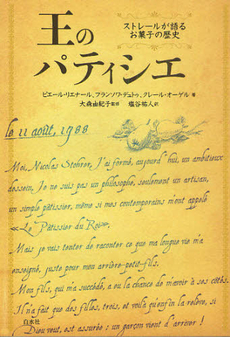 ストレールが語る
お菓子の歴史
王の
パティシエ
ピエール・リエナール、フランソワ・デュトゥ、クレール・オーゲル 著
大森由紀子 監修 塩谷祐人 訳
le 11 août, 1988
Moi, Nicolas Stohrer, j'ai formé, aujourd'hui, un ambitieux
dessein. Je ne suis pas un philosophe, seulement un artisan,
un simple pâtissier, même si mes contemporains m'ont appelé
«Le Pâtissier du Roi».
Mais je vais tenter de raconter ce que ma longue vie m'a
enseigné, juste pour mon arrière-petit-fils.
Mon fils, qui m'a succédé, a eu la chance de m'avoir à ses côtés.
Il n'a fait que des filles, trois, et voilà qu'enfin la relève, si
Dieu veut, est assurée : un garçon vient d'arriver !
白水社